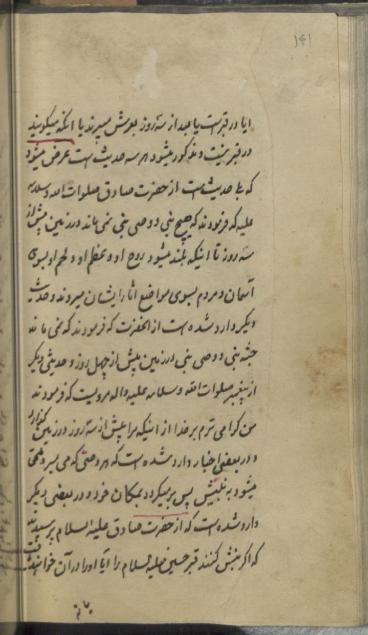 ۱۴۱
ایا در قبرست یا بعد از سه روز بعرش میبرند یا آنکه میگویند
در قبر نیست و مذکور میشود هر سه حدیث است عرض میشود
که بلی حدیث است از حضرت صادق صلوات الله و سلامه
علیه که فرمودند که هیچ نبی و وصی نبی نمی ماند در زمین بیش از
سه روز تا اینکه بلند میشود روح او و عظم او و لحم او بسوی
آسمان و مردم بسوی مواضع آثار ایشان میروند و حدیث
دیگر وارد شده است از آنحضرت که فرمودند که نمی ماند
جثه نبی و وصی نبی در زمین بیش از چهل روز و حدیثی دیگر
از پیغمبر صلوات الله و سلامه علیه واله مرویست که فرمودند
من گرامی ترم بر خدا از اینکه مرا بیش از سه روز در زمین گذارد
و در بعضی اخبار وارد شده است که هر وصیی که می میرد ملحق
میشود به نبیش پس برمیگردد بمکان خود و در بعضی دیگر
وارد شده است که از حضرت صادق علیه السلام پرسیدند
که اگر نبش کنند قبر حسین علیه السلام را آیا او را در آن خواهند
یافت